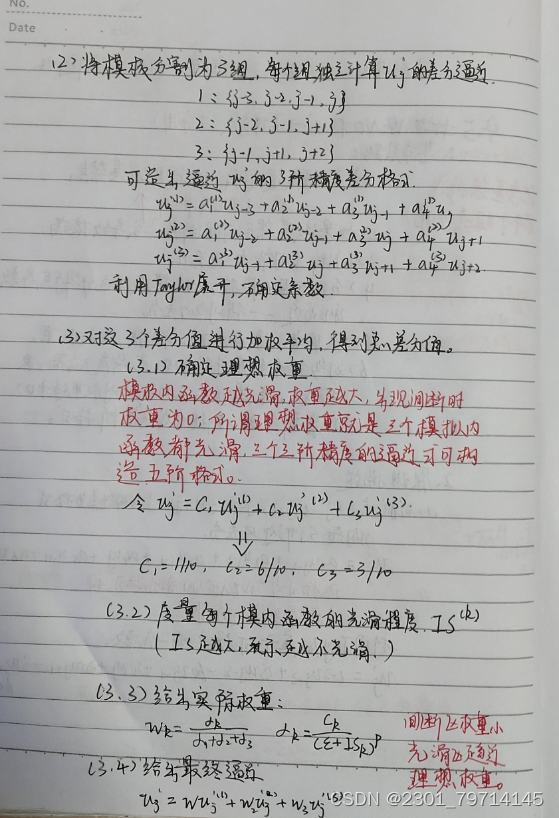 No.
Date
(2) 将模板分割为3组,每个组独立计算uj'的差分逼近.
1: {j-3, j-2, j-1, j}
2: {j-2, j-1, j+1}
3: {j-1, j+1, j+2}
可造出逼近 uj'的3阶精度差分格式.
uj'(1)=a1(1)uj-3+a2(1)uj-2+a3(1)uj-1+a4(1)uj
uj'(2)=a1(2)uj-2+a2(2)uj-1+a3(2)uj+a4(2)uj+1
uj'(3)=a1(3)uj-1+a2(3)uj+a3(3)uj+1+a4(3)uj+2
利用Taylor展开,确定系数.
(3)对这3个差分值进行加权平均,得到总差分值。
(3.1) 确定理想权重.
模板内函数越光滑,权重越大,出现间断时
权重为0;所谓理想权重就是三个模板内
函数都光滑,三个三阶精度的逼近式可构
造五阶格式。
令 uj'=C1uj'(1)+C2uj'(2)+C3uj'(3).
⇓
C1=1/10, C2=6/10, C3=3/10
(3.2) 度量每个模内函数的光滑程度. IS(k)
(IS越大,表示越不光滑.)
(3.3) 给出实际权重:
wk=αk/(α1+α2+α3) αk=Ck/(ε+ISk)^p
间断区权重小
光滑区趋近
理想权重。
(3.4) 给出最终逼近
uj'=wuj'(1)+w2uj'(2)+w3uj'(3)
CSDN @2301_79714145